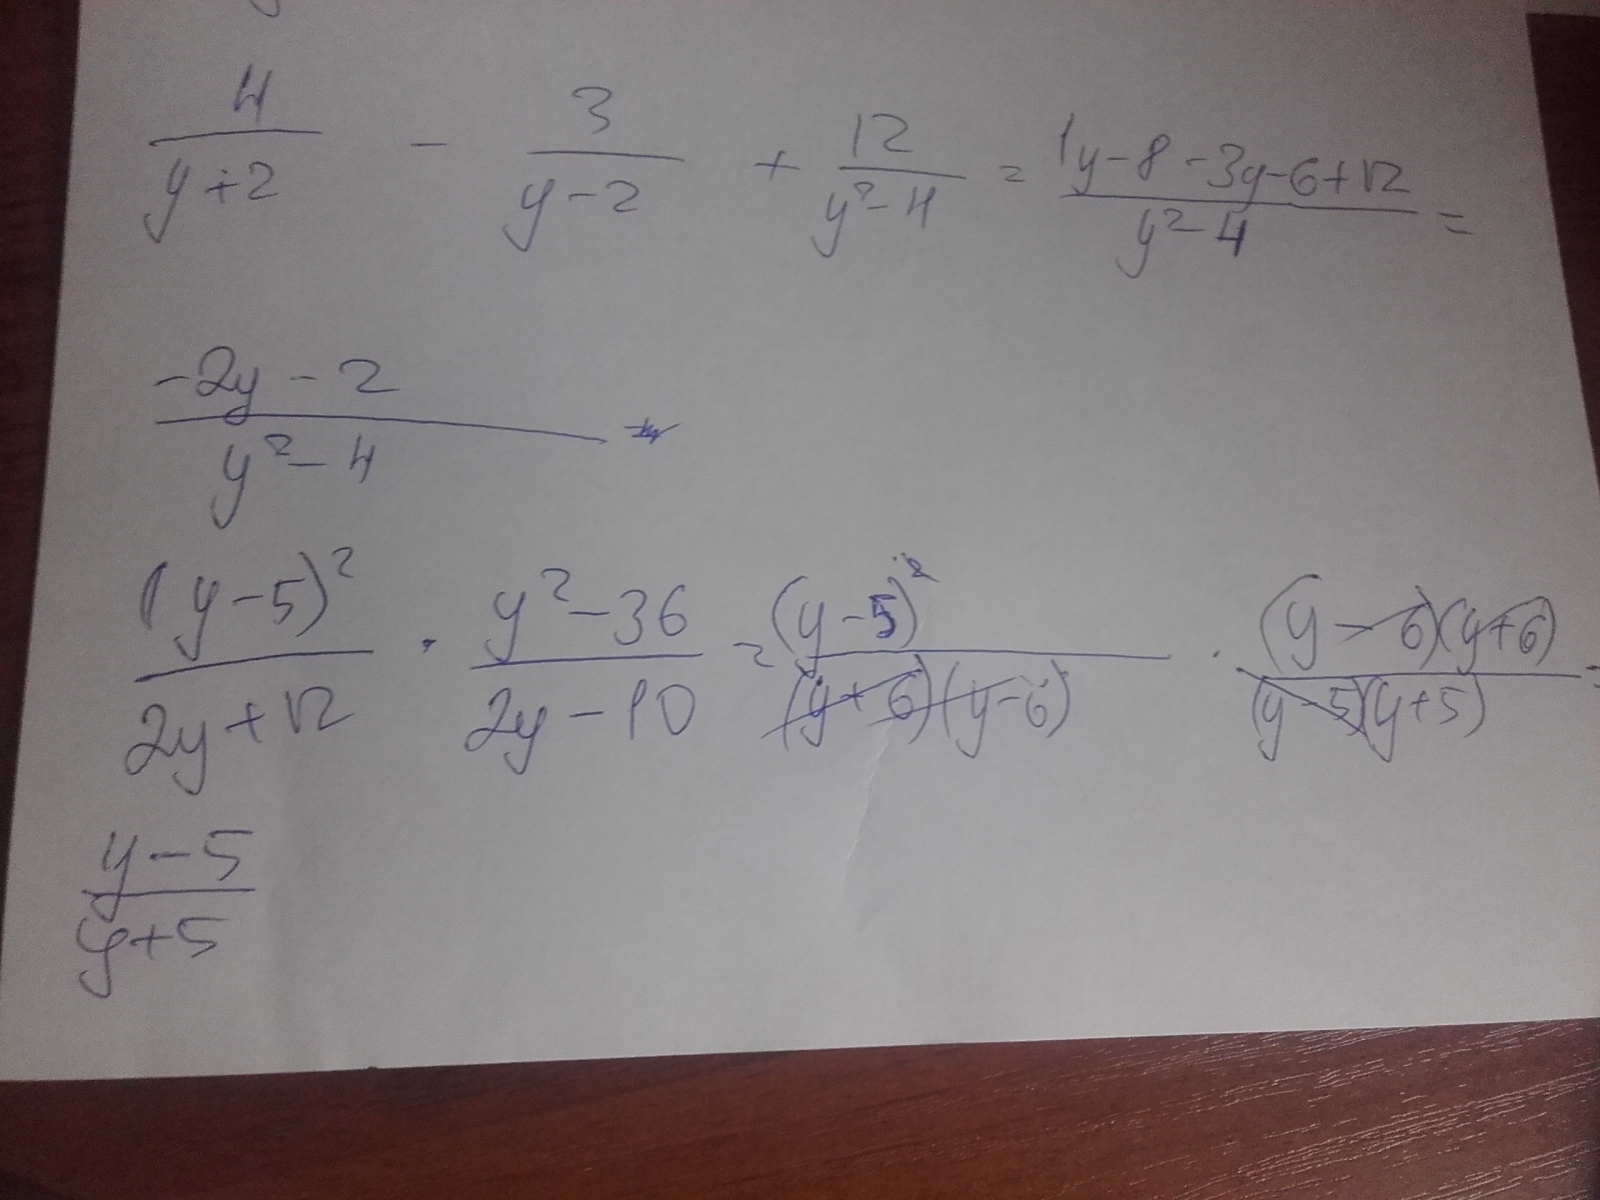 4/(y+2) - 3/(y-2) + 12/(y²-4) = (1y-8-3y-6+12)/(y²-4) =
(-2y-2)/(y²-4)
(y-5)²/(2y+12) · (y²-36)/(2y-10) = (y-5)²/((y+6)(y-6)) · ((y-6)(y+6))/((y-5)(y+5)) =
(y-5)/(y+5)